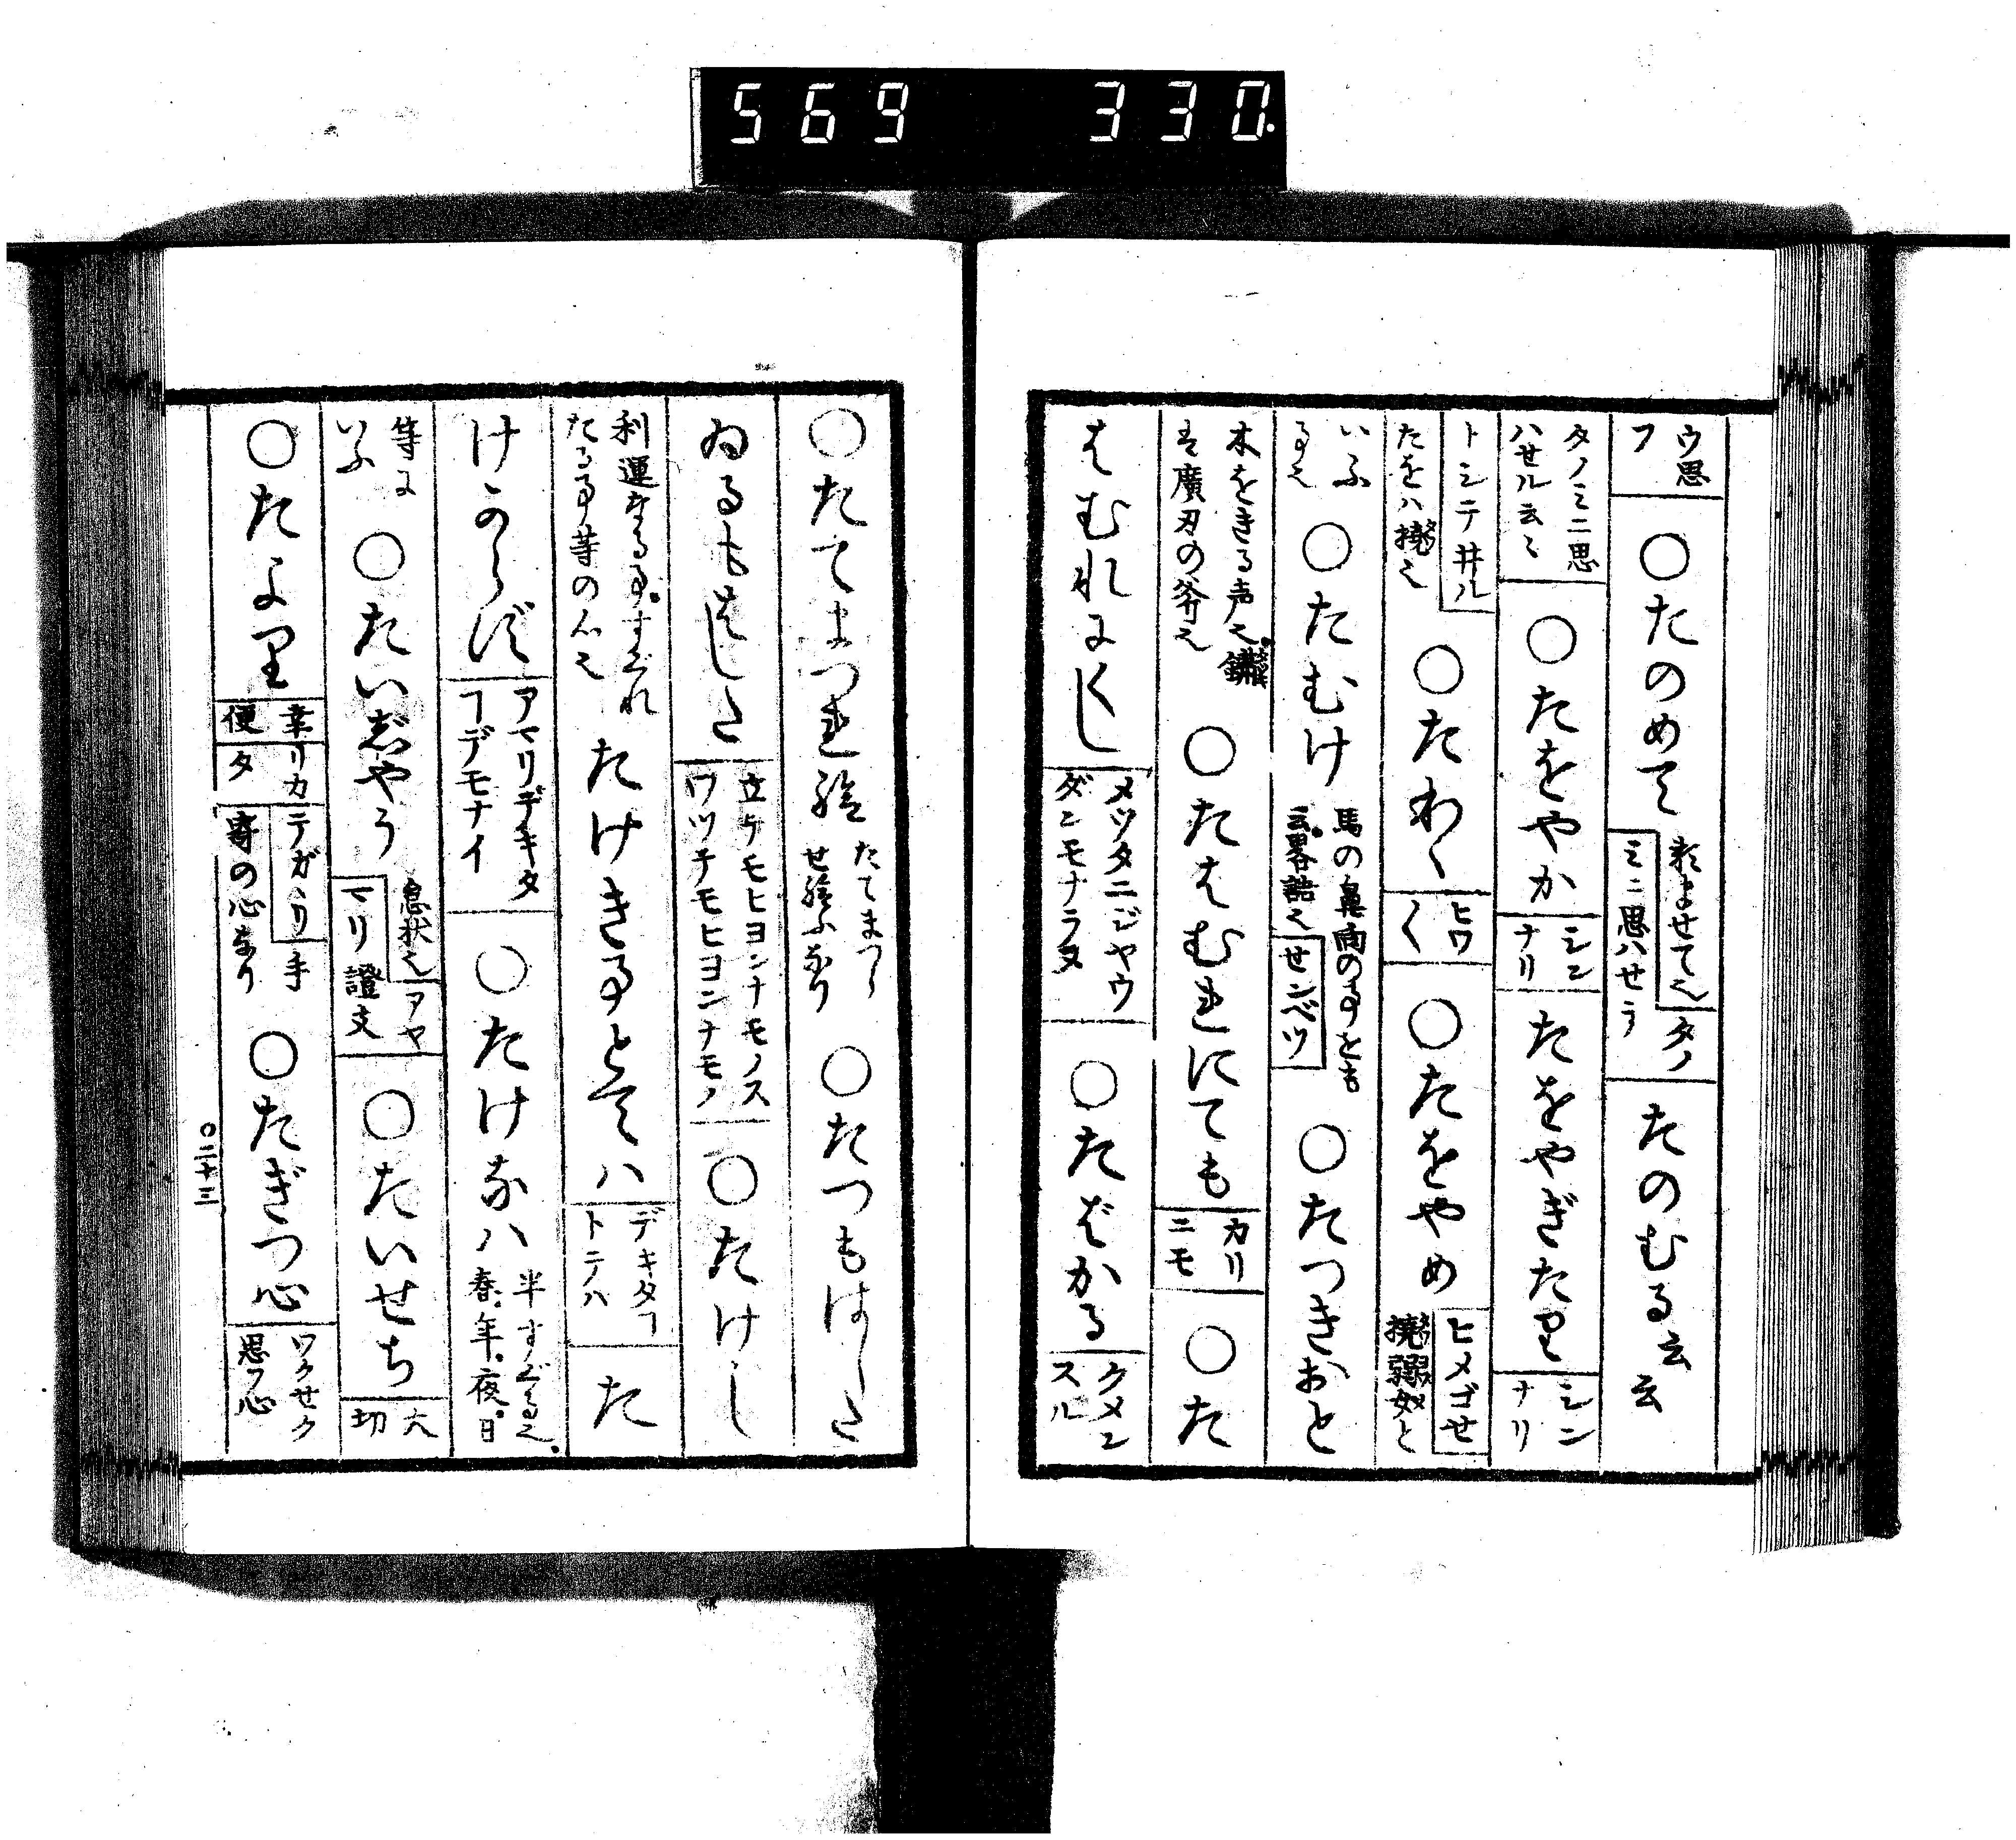 569 330.
ウ思フ ○たのめて 頼ませて也 タノミニ思ハせテ たのむる云云
タノミニ思ハせル云々 ○たをやか シンナリ たをやぎたり シンナリ
トシテ井ル たをハ撓也 ○たわく ヒワく ○たをやめ ヒメゴせ 撓弱女と
いふ事也 ○たむけ 馬の鼻向の事をも云。畧語也 せンベツ ○たつきおと
木をきる声也。 廣刃の斧也 ○たはむれにても カリニモ ○た
はむれにくし メツタニジヤウダンモナラヌ ○たばかる クメンスル
○たてまつれ給 たてまつらせ給ふ也 ○たつもはした
ゐるもはした 立ケモヒヨンナモノスワツテモヒヨンナモノ ○たけし
利運なる事。すぐれたる事等の心也 たけき事とてハ デキタヿトテハ た
けからず アマリデキタヿデモナイ ○たけなハ 半すぐる也。春。年。夜。日
等にいふ ○たいじやう 怠状也 アヤマリ證文 ○たいせち 大切
○たより 幸便 リカタ テガヽリ 手寄の心なり ○たぎつ心 ワクせク思フ心
○二十三